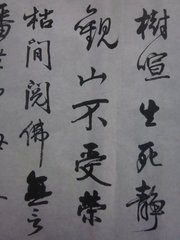 樹喧生死靜
觀山不受榮
枯閒閱佛無言